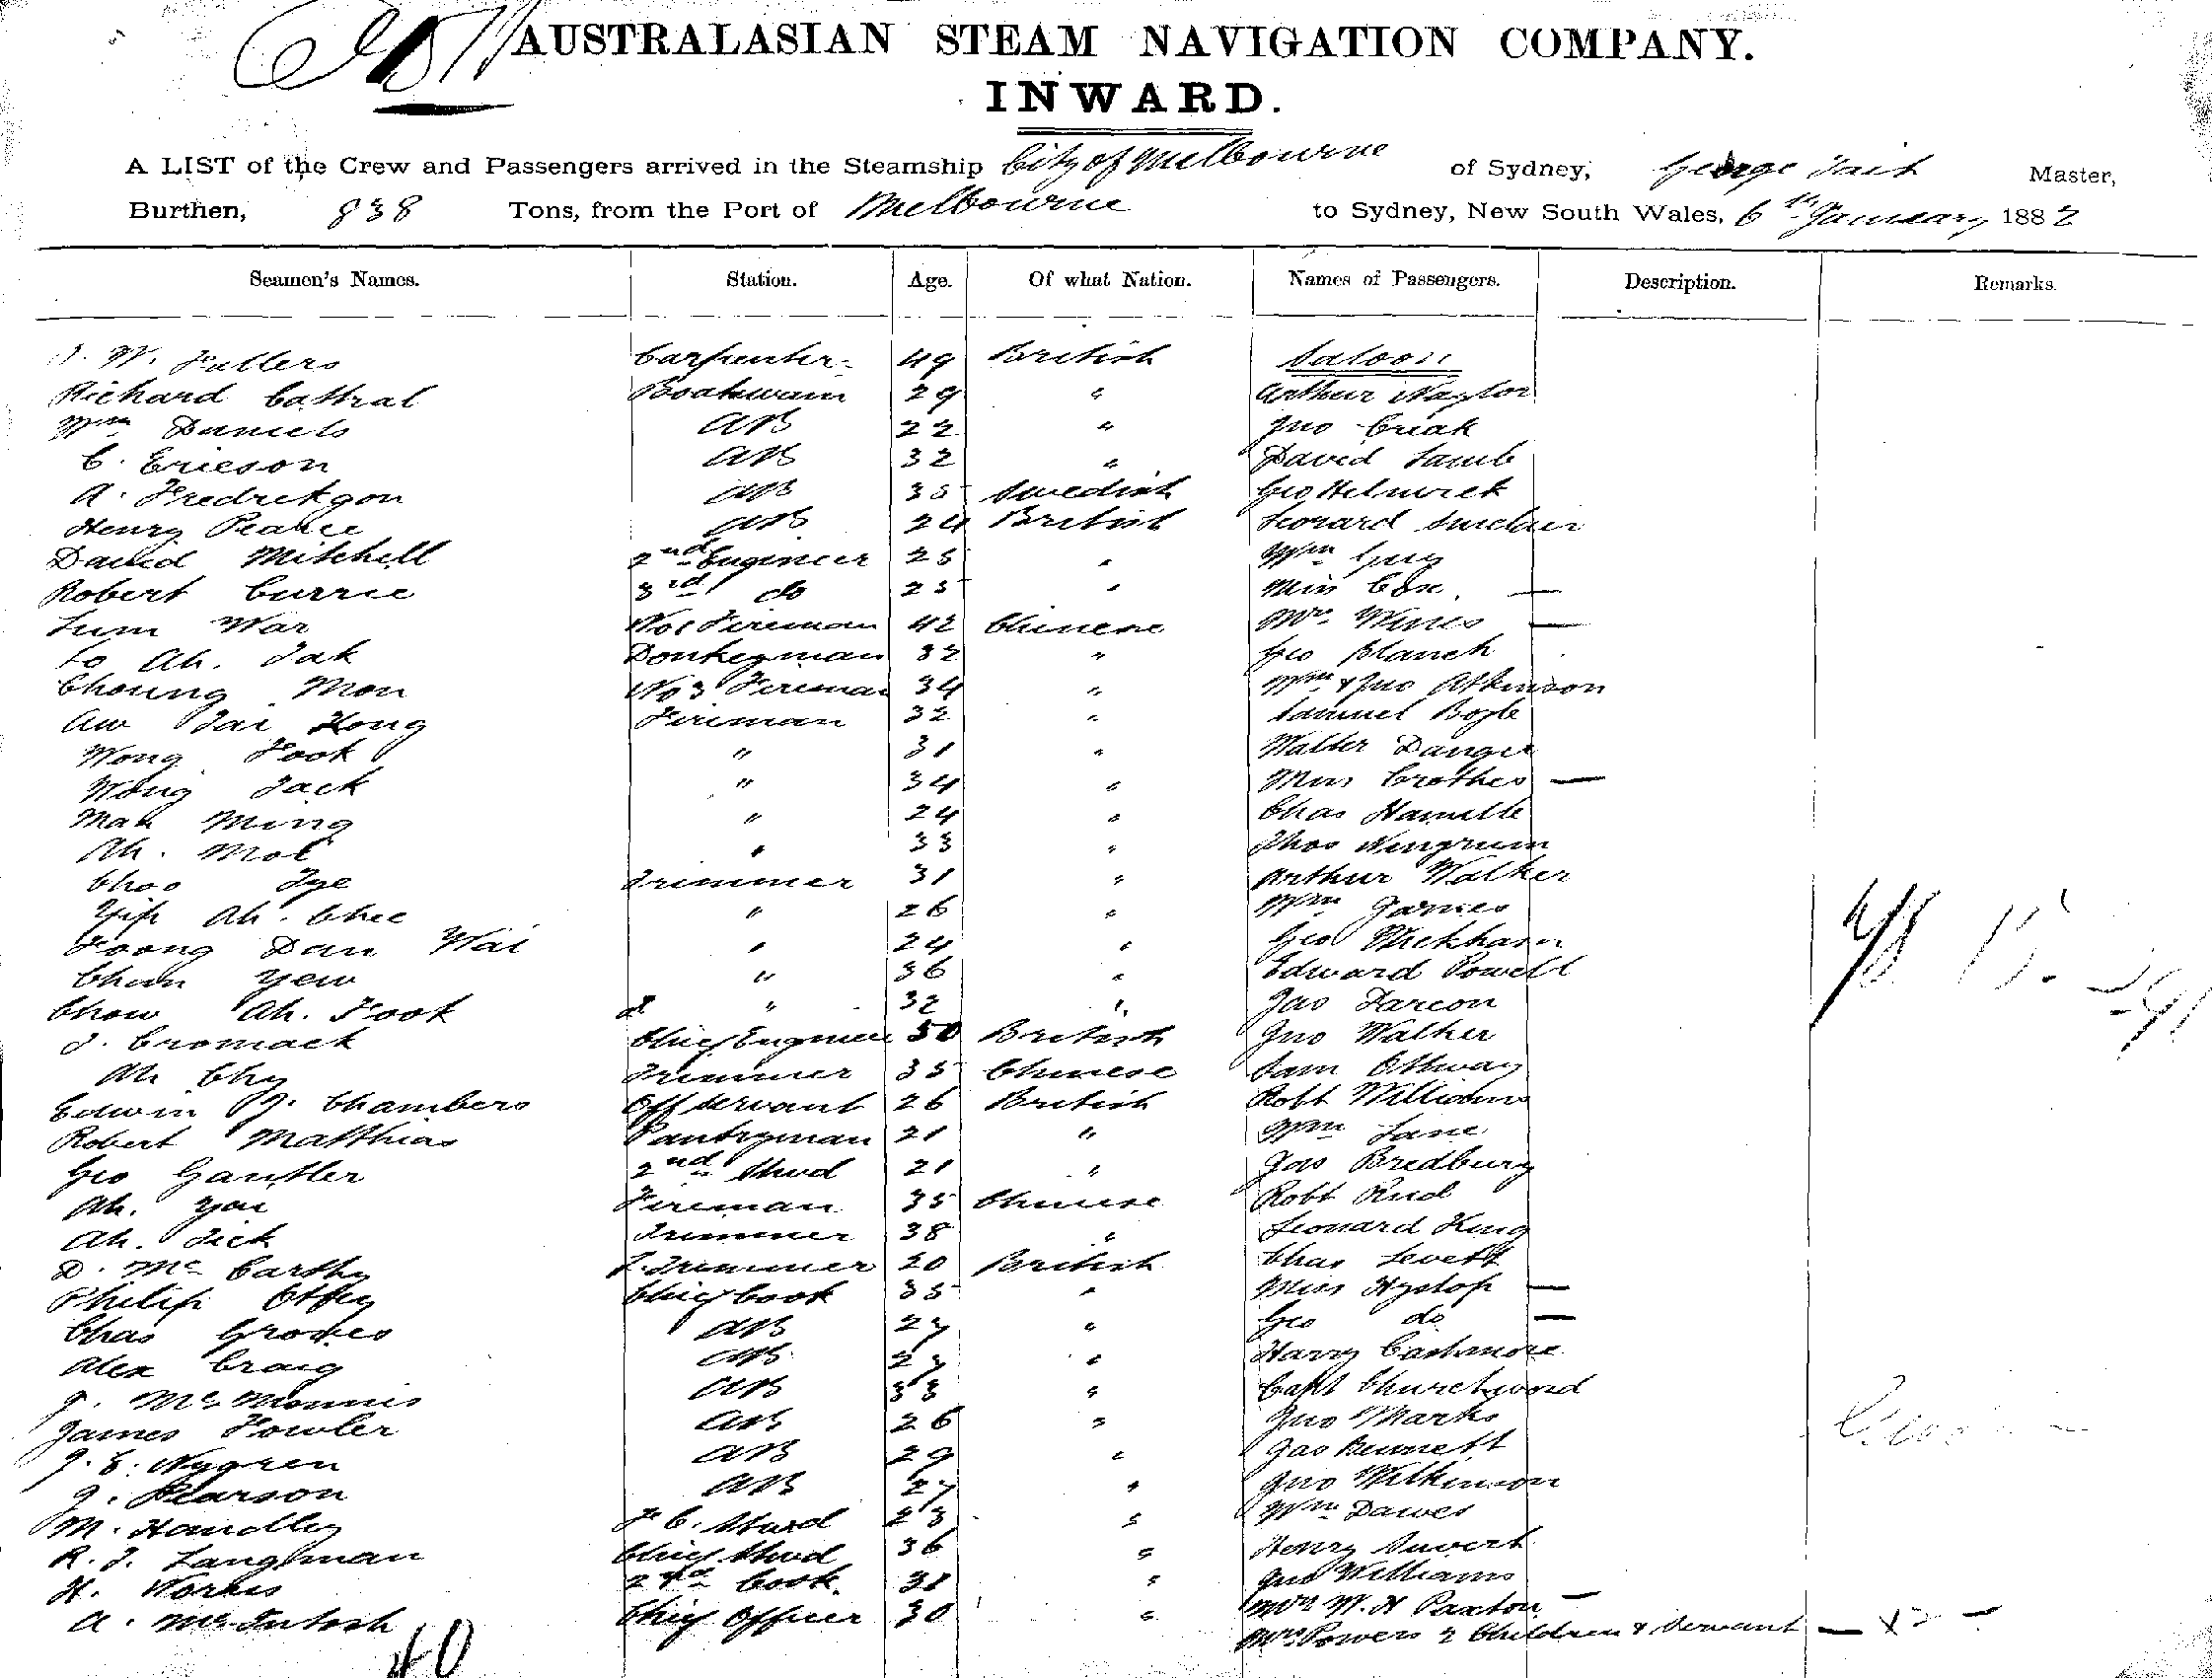 AUSTRALASIAN STEAM NAVIGATION COMPANY.
INWARD.
A LIST of the Crew and Passengers arrived in the Steamship City of Melbourne of Sydney, George Tait Master,
Burthen, 838 Tons, from the Port of Melbourne to Sydney, New South Wales, 6th January 1882
Seamen's Names. Station. Age. Of what Nation. Names of Passengers. Description. Remarks.
W. Fullers Carpenter 49 British Saloon
Richard Cattral Boatswain 29 " Arthur Naylor
Wm Daniels AB 22 " Jno Creak
C. Ericson AB 32 " David Lamb
A. Fredrekson AB 35 Swedish Geo Helmrick
Henry Pearce AB 24 British Leonard Sinclair
David Mitchell 2nd Engineer 25 " Wm Guy
Robert Currie 3rd do 25 " Miss Cox —
Lum War No 1 Fireman 42 Chinese Mr. Wines —
Lo Ah. Tak Donkeyman 32 " Geo Blanch
Choung Mon No 3 Fireman 34 " Wm & Jno Atkinson
Aw Tai Kong Fireman 32 " Samuel Bogle
Wong Fook " 31 " Walter Danger
Wong Jack " 34 " Miss Crothers —
Mak Ming " 24 " Chas Hamilto
Ah. Moi " 33 " Thos Wingrum
Choo Tye Trimmer 31 " Arthur Walker
Yip Ah. Chee " 26 " Wm James
Foong Dan Wai " 24 " Geo Wickham
Chan Yew " 36 " Edward Powell
Chow Ah. Fook " 32 " Jas Farcon
J. Cromack Chief Engineer 50 British Jno Walker
Ah Chy Trimmer 35 Chinese Sam Othway
Edwin J. Chambers Off Servant 26 British Robt Williams
Robert Matthias Pantryman 21 " Wm Lane
Geo Gantler 2nd Stwd 21 " Jas Bredbury
Ah. You Fireman 35 Chinese Robt Reid
Ah. Tick Trimmer 38 " Leonard King
D. McCarthy F. Trimmer 20 British Chas Levett
Philip Offey Chief Cook 35 " Miss Hyslop —
Chas Groves AB 27 " Geo do —
Alex Craig AB 27 " Harry Cashmore
J. McMennis AB 33 " Capt Churchword
James Fowler AB 26 " Jno Marks
J. E. Nygren AB 29 " Jas Bennett
J. Pearson AB 27 " Jno Wilkinson
M. Handley F. C. Stwd 23 " Wm Dawes
R. J. Langman Chief Stwd 36 " Henry Sivert
H. Works 2nd Cook 31 " Jno Williams
A. McIntosh Chief Officer 30 " Mrs W. H Paxton —
40 Mrs Powers 2 Children & Servant —